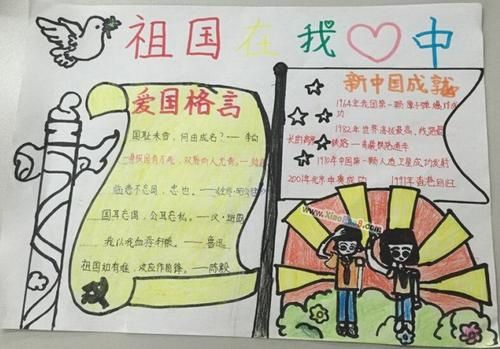 祖国在我中
爱国格言
国耻未雪，何由成名？——李白
临患不忘国，忠也。——
国耳忘家，公耳忘私。——汉·
我以我血荐轩辕。——鲁迅
祖国如有难，汝应作前锋。——陈毅
新中国成就
1964年我国第一颗原子弹爆炸成功
世界海拔最高、线路最长的高原铁路——青藏铁路通车
1970年中国第一颗人造卫星成功发射
2001年北京申奥成功 1997年香港回归
www.Xiao
8.com